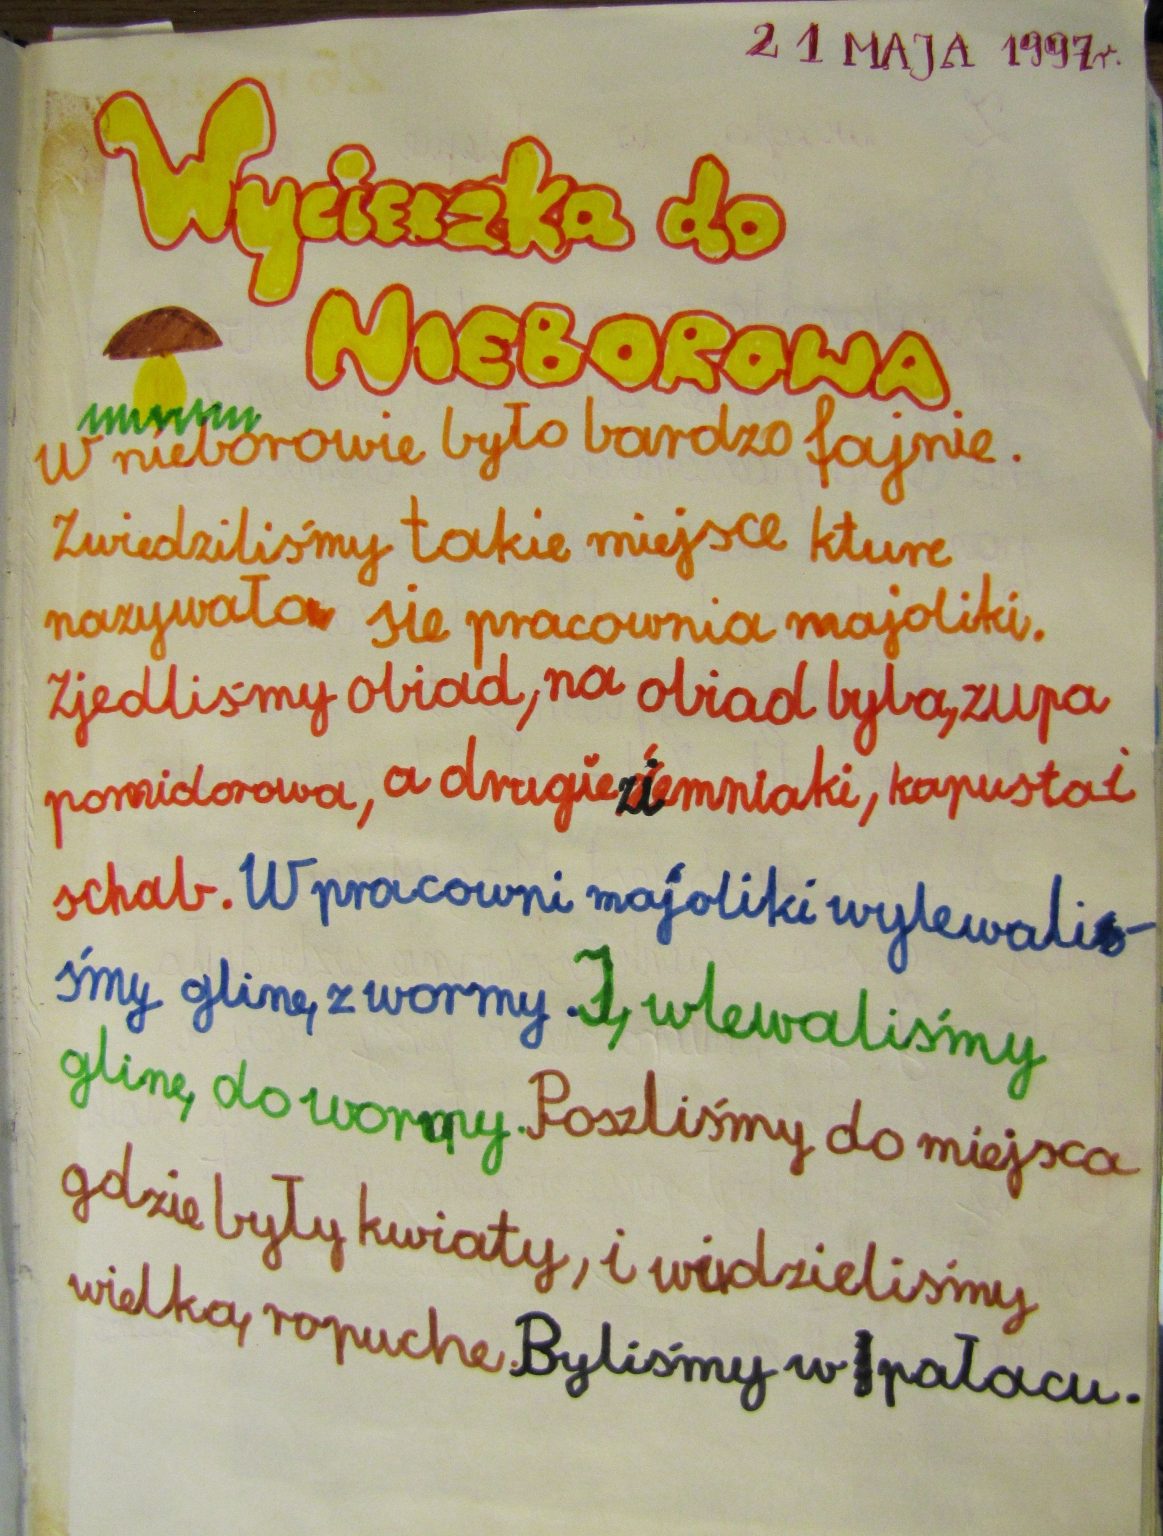 21 MAJA 1997r.
Wycieczka do
NIEBOROWA
W nieborowie było bardzo fajnie.
Zwiedziliśmy takie miejsce kture
nazywało się pracownia majoliki.
Zjedliśmy obiad, na obiad była, zupa
pomidorowa, a drugie ziemniaki, kapusta i
schab. W pracowni majoliki wylewali-
śmy glinę z wormy. I, wlewaliśmy
glinę do wormy. Poszliśmy do miejsca
gdzie były kwiaty, i widzieliśmy
wielką ropuchę. Byliśmy w pałacu.